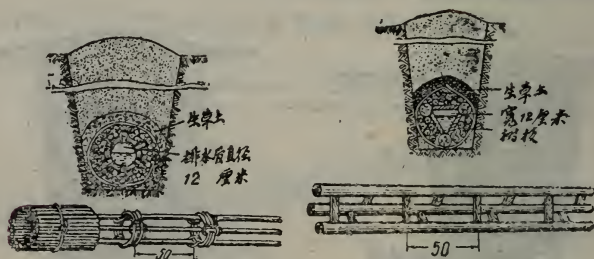 生草土
排水管直径
12 厘米
50
生草土
宽12厘米
树枝
50